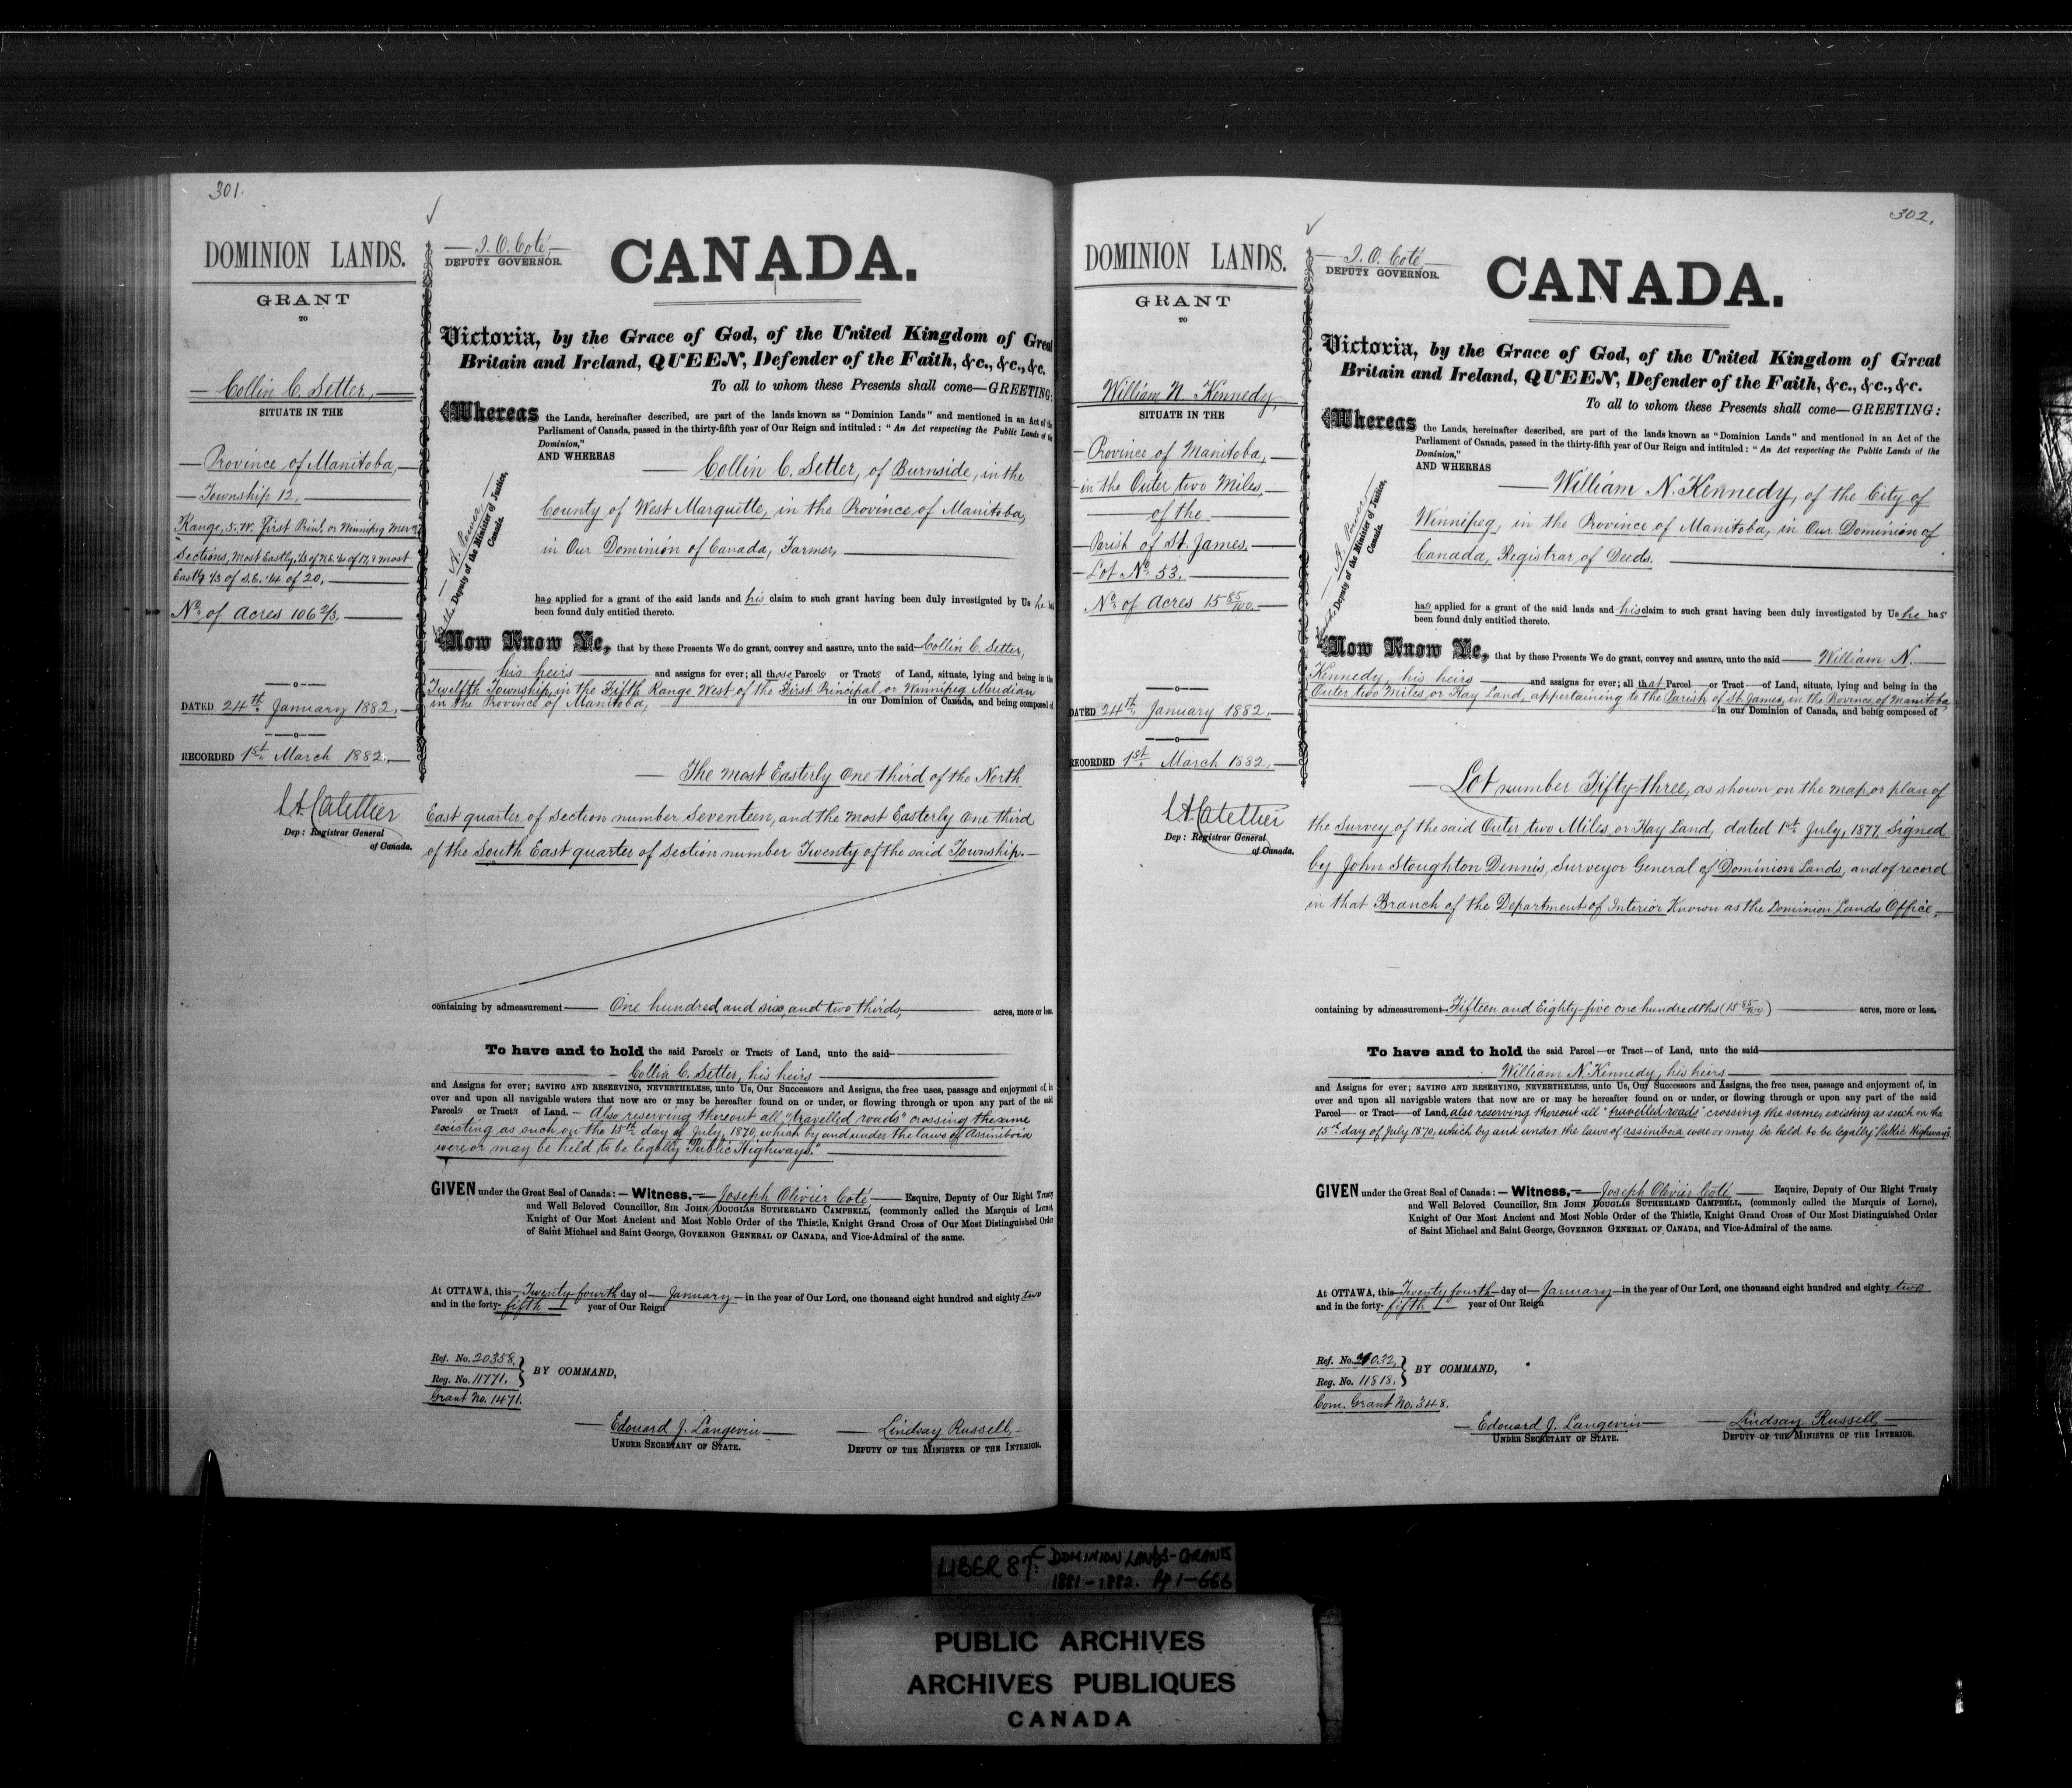 301.
DOMINION LANDS.
GRANT
TO
Collin C. Setter,
SITUATE IN THE
Province of Manitoba,
Township 12,
Range, 5. W. First Prinl. or Winnipeg Merid.
Sections, Most Eastly. 1/3 of N.E. 1/4 of 17, & most
Eastly 1/3 of S.E. 1/4 of 20.
No. of Acres 106 2/3.
DATED 24th January 1882.
RECORDED 1st March 1882.
Dep: Registrar General
of Canada.
J. O. Coté
DEPUTY GOVERNOR.
CANADA.
A. Power
Deputy of the Minister of Justice,
Canada.
Victoria, by the Grace of God, of the United Kingdom of Great
Britain and Ireland, QUEEN, Defender of the Faith, &c., &c., &c.
To all to whom these Presents shall come—GREETING:
Whereas the Lands, hereinafter described, are part of the lands known as "Dominion Lands" and mentioned in an Act of the
Parliament of Canada, passed in the thirty-fifth year of Our Reign and intituled: "An Act respecting the Public Lands of the
Dominion,"
AND WHEREAS Collin C. Setter, of Burnside, in the
County of West Marquette, in the Province of Manitoba,
in Our Dominion of Canada, Farmer,
has applied for a grant of the said lands and his claim to such grant having been duly investigated by Us he has
been found duly entitled thereto.
Now Know Ye, that by these Presents We do grant, convey and assure, unto the said Collin C. Setter,
his heirs and assigns for ever; all those Parcels or Tracts of Land, situate, lying and being in the
Twelfth Township, in the Fifth Range West of the First Principal or Winnipeg Meridian
in the Province of Manitoba, in our Dominion of Canada, and being composed of
The most Easterly one third of the North
East quarter of Section number Seventeen, and the most Easterly one third
of the South East quarter of Section number Twenty of the said Township.
containing by admeasurement One hundred and six, and two thirds, acres, more or less.
To have and to hold the said Parcels or Tracts of Land, unto the said
Collin C. Setter, his heirs
and Assigns for ever; SAVING AND RESERVING, NEVERTHELESS, unto Us, Our Successors and Assigns, the free uses, passage and enjoyment of, in
over and upon all navigable waters that now are or may be hereafter found on or under, or flowing through or upon any part of the said
Parcels or Tracts of Land. – Also reserving thereout all "travelled roads" crossing the same
existing as such on the 15th day of July, 1870, which by and under the laws of Assiniboia
were or may be held to be legally "Public Highways."
GIVEN under the Great Seal of Canada: — Witness, Joseph Olivier Coté Esquire, Deputy of Our Right Trusty
and Well Beloved Councillor, SIR JOHN DOUGLAS SUTHERLAND CAMPBELL, (commonly called the Marquis of Lorne),
Knight of Our Most Ancient and Most Noble Order of the Thistle, Knight Grand Cross of Our Most Distinguished Order
of Saint Michael and Saint George, GOVERNOR GENERAL OF CANADA, and Vice-Admiral of the same.
At OTTAWA, this Twenty fourth day of January in the year of Our Lord, one thousand eight hundred and eighty two
and in the forty-fifth year of Our Reign
Ref. No. 20358.
Reg. No. 11771.
BY COMMAND,
Grant No. 1471.
Edouard J. Langevin
UNDER SECRETARY OF STATE.
Lindsay Russell,
DEPUTY OF THE MINISTER OF THE INTERIOR.
302.
DOMINION LANDS.
GRANT
TO
William N. Kennedy,
SITUATE IN THE
Province of Manitoba,
in the Outer two Miles,
of the
Parish of St. James.
Lot No. 53.
No. of Acres 15 85/100.
DATED 24th January 1882.
RECORDED 1st March 1882.
Dep: Registrar General
of Canada.
J. O. Coté
DEPUTY GOVERNOR.
CANADA.
A. Power
Deputy of the Minister of Justice,
Canada.
Victoria, by the Grace of God, of the United Kingdom of Great
Britain and Ireland, QUEEN, Defender of the Faith, &c., &c., &c.
To all to whom these Presents shall come—GREETING:
Whereas the Lands, hereinafter described, are part of the lands known as "Dominion Lands" and mentioned in an Act of the
Parliament of Canada, passed in the thirty-fifth year of Our Reign and intituled: "An Act respecting the Public Lands of the
Dominion,"
AND WHEREAS William N. Kennedy, of the City of
Winnipeg, in the Province of Manitoba, in Our Dominion of
Canada, Registrar of Deeds.
has applied for a grant of the said lands and his claim to such grant having been duly investigated by Us he has
been found duly entitled thereto.
Now Know Ye, that by these Presents We do grant, convey and assure, unto the said William N.
Kennedy, his heirs and assigns for ever; all that Parcel or Tract of Land, situate, lying and being in the
Outer two Miles, or Hay Land, appertaining to the Parish of St. James, in the Province of Manitoba
in our Dominion of Canada, and being composed of
Lot number Fifty-three, as shown on the map or plan of
the Survey of the said Outer two Miles, or Hay Land, dated 1st July, 1877, signed
by John Stoughton Dennis, Surveyor General of Dominion Lands, and of record
in that Branch of the Department of Interior Known as the Dominion Lands Office.
containing by admeasurement Fifteen and Eighty-five one hundredths (15 85/100) acres, more or less.
To have and to hold the said Parcel or Tract of Land, unto the said
William N. Kennedy, his heirs
and Assigns for ever; SAVING AND RESERVING, NEVERTHELESS, unto Us, Our Successors and Assigns, the free uses, passage and enjoyment of, in
over and upon all navigable waters that now are or may be hereafter found on or under, or flowing through or upon any part of the said
Parcel or Tract of Land, also reserving thereout all "travelled roads" crossing the same, existing as such on the
15th day of July 1870, which by and under the laws of assiniboia were or may be held to be legally "Public Highways.
GIVEN under the Great Seal of Canada: — Witness, Joseph Olivier Coté Esquire, Deputy of Our Right Trusty
and Well Beloved Councillor, SIR JOHN DOUGLAS SUTHERLAND CAMPBELL, (commonly called the Marquis of Lorne),
Knight of Our Most Ancient and Most Noble Order of the Thistle, Knight Grand Cross of Our Most Distinguished Order
of Saint Michael and Saint George, GOVERNOR GENERAL OF CANADA, and Vice-Admiral of the same.
At OTTAWA, this Twenty fourth day of January in the year of Our Lord, one thousand eight hundred and eighty two
and in the forty-fifth year of Our Reign
Ref. No.
Reg. No. 11818.
BY COMMAND,
Com. Grant No. 348.
Edouard J. Langevin
UNDER SECRETARY OF STATE.
Lindsay Russell,
DEPUTY OF THE MINISTER OF THE INTERIOR.
LIBER 87: DOMINION LANDS - GRANTS
1881-1882. Pp 1-666
PUBLIC ARCHIVES
ARCHIVES PUBLIQUES
CANADA